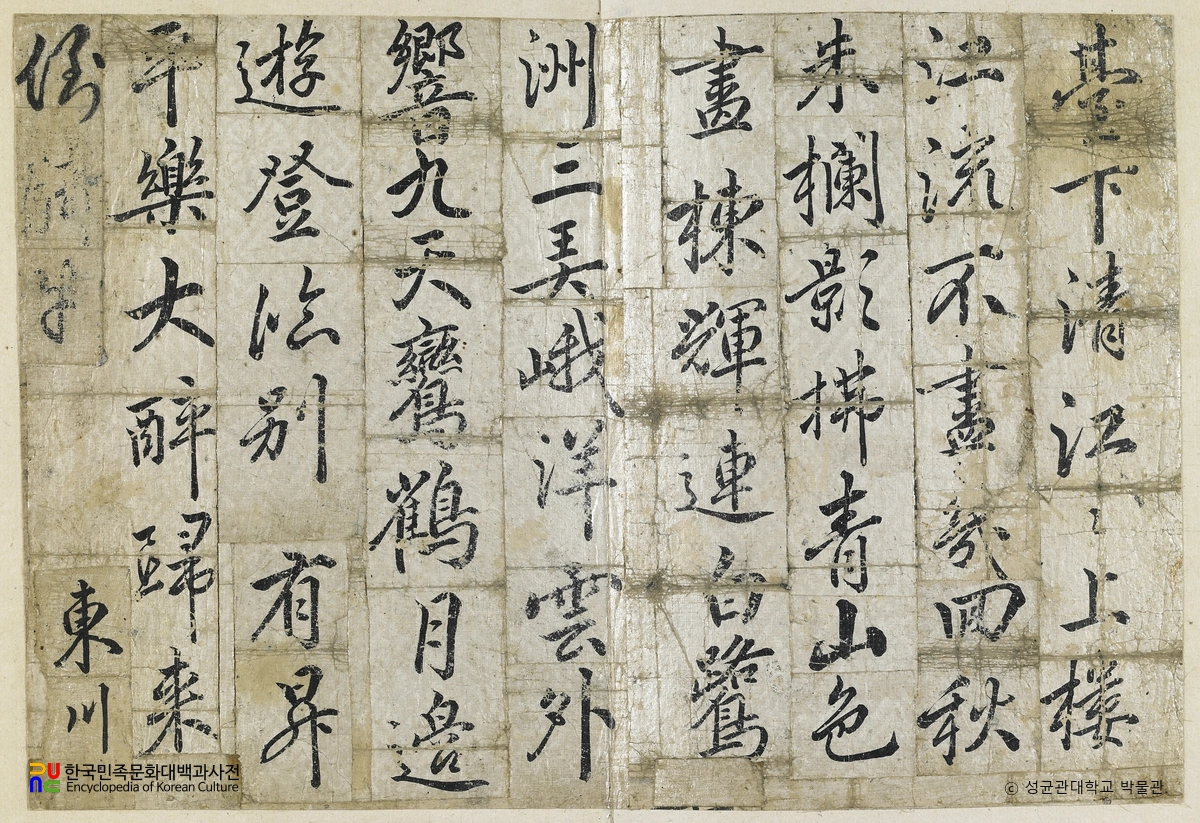 臺下清江〻上樓
江流不盡幾回秋
朱欄影拂青山色
畫棟輝連白鷺
洲三弄峨洋雲外
響九天鸞鶴月邊
遊登臨別有昇
平樂大醉歸来
東川
한국민족문화대백과사전
Encyclopedia of Korean Culture
ⓒ 성균관대학교 박물관